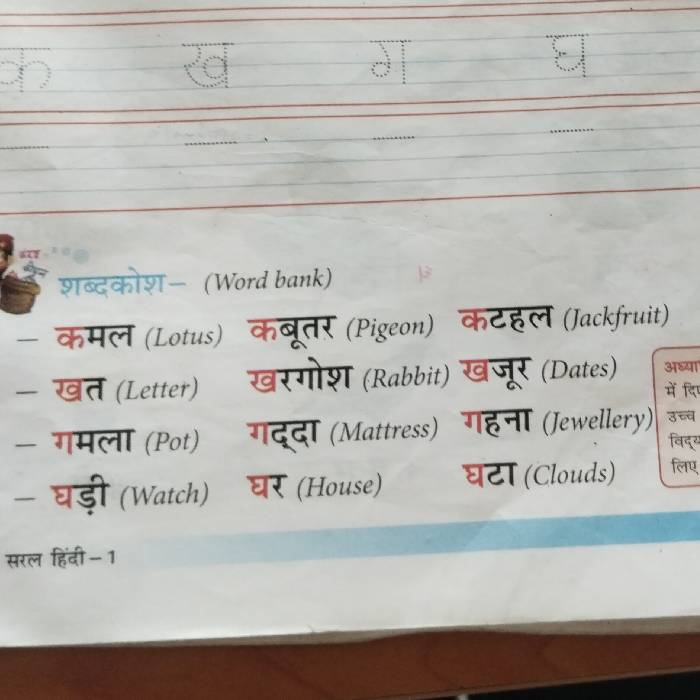 क ख ग घ
शब्दकोश– (Word bank)
– कमल (Lotus) कबूतर (Pigeon) कटहल (Jackfruit)
– खत (Letter) खरगोश (Rabbit) खजूर (Dates)
– गमला (Pot) गद्दा (Mattress) गहना (Jewellery)
– घड़ी (Watch) घर (House) घटा (Clouds)
अध्या
में दि
उच्च
विद्य
लिए
सरल हिंदी – 1